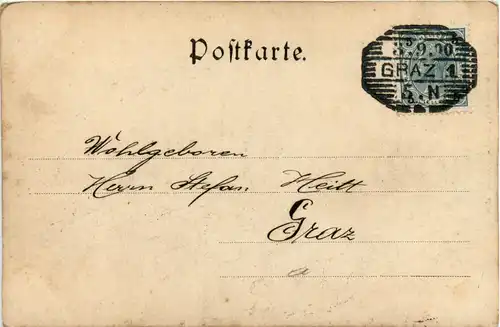 Postkarte.
3.9.00
GRAZ 1
5.N
Wohlgeboren
Herrn Stefan Heilt
Graz
a